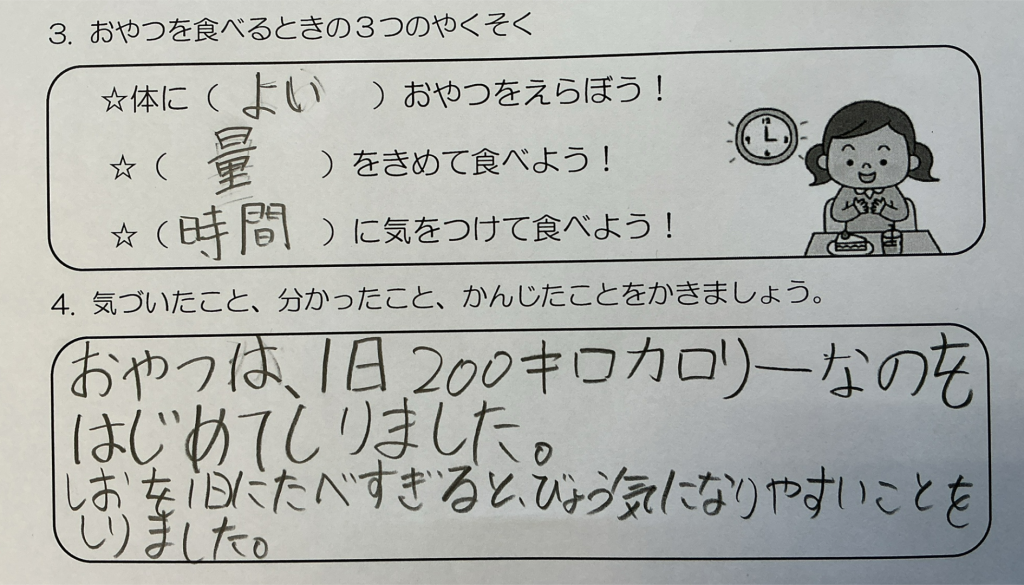 3. おやつを食べるときの3つのやくそく
☆体に（ よい ）おやつをえらぼう！
☆（ 量 ）をきめて食べよう！
☆（時間 ）に気をつけて食べよう！
4. 気づいたこと、分かったこと、かんじたことをかきましょう。
おやつは、1日200キロカロリーなのを
はじめてしりました。
しおを1日にたべすぎると、びょう気になりやすいことを
しりました。